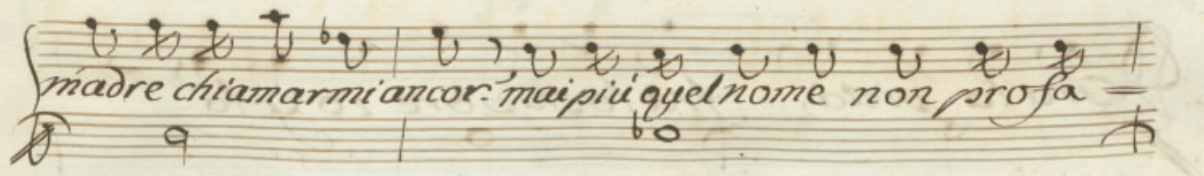 madre chiamarmi ancor? mai più quel nome non profa =